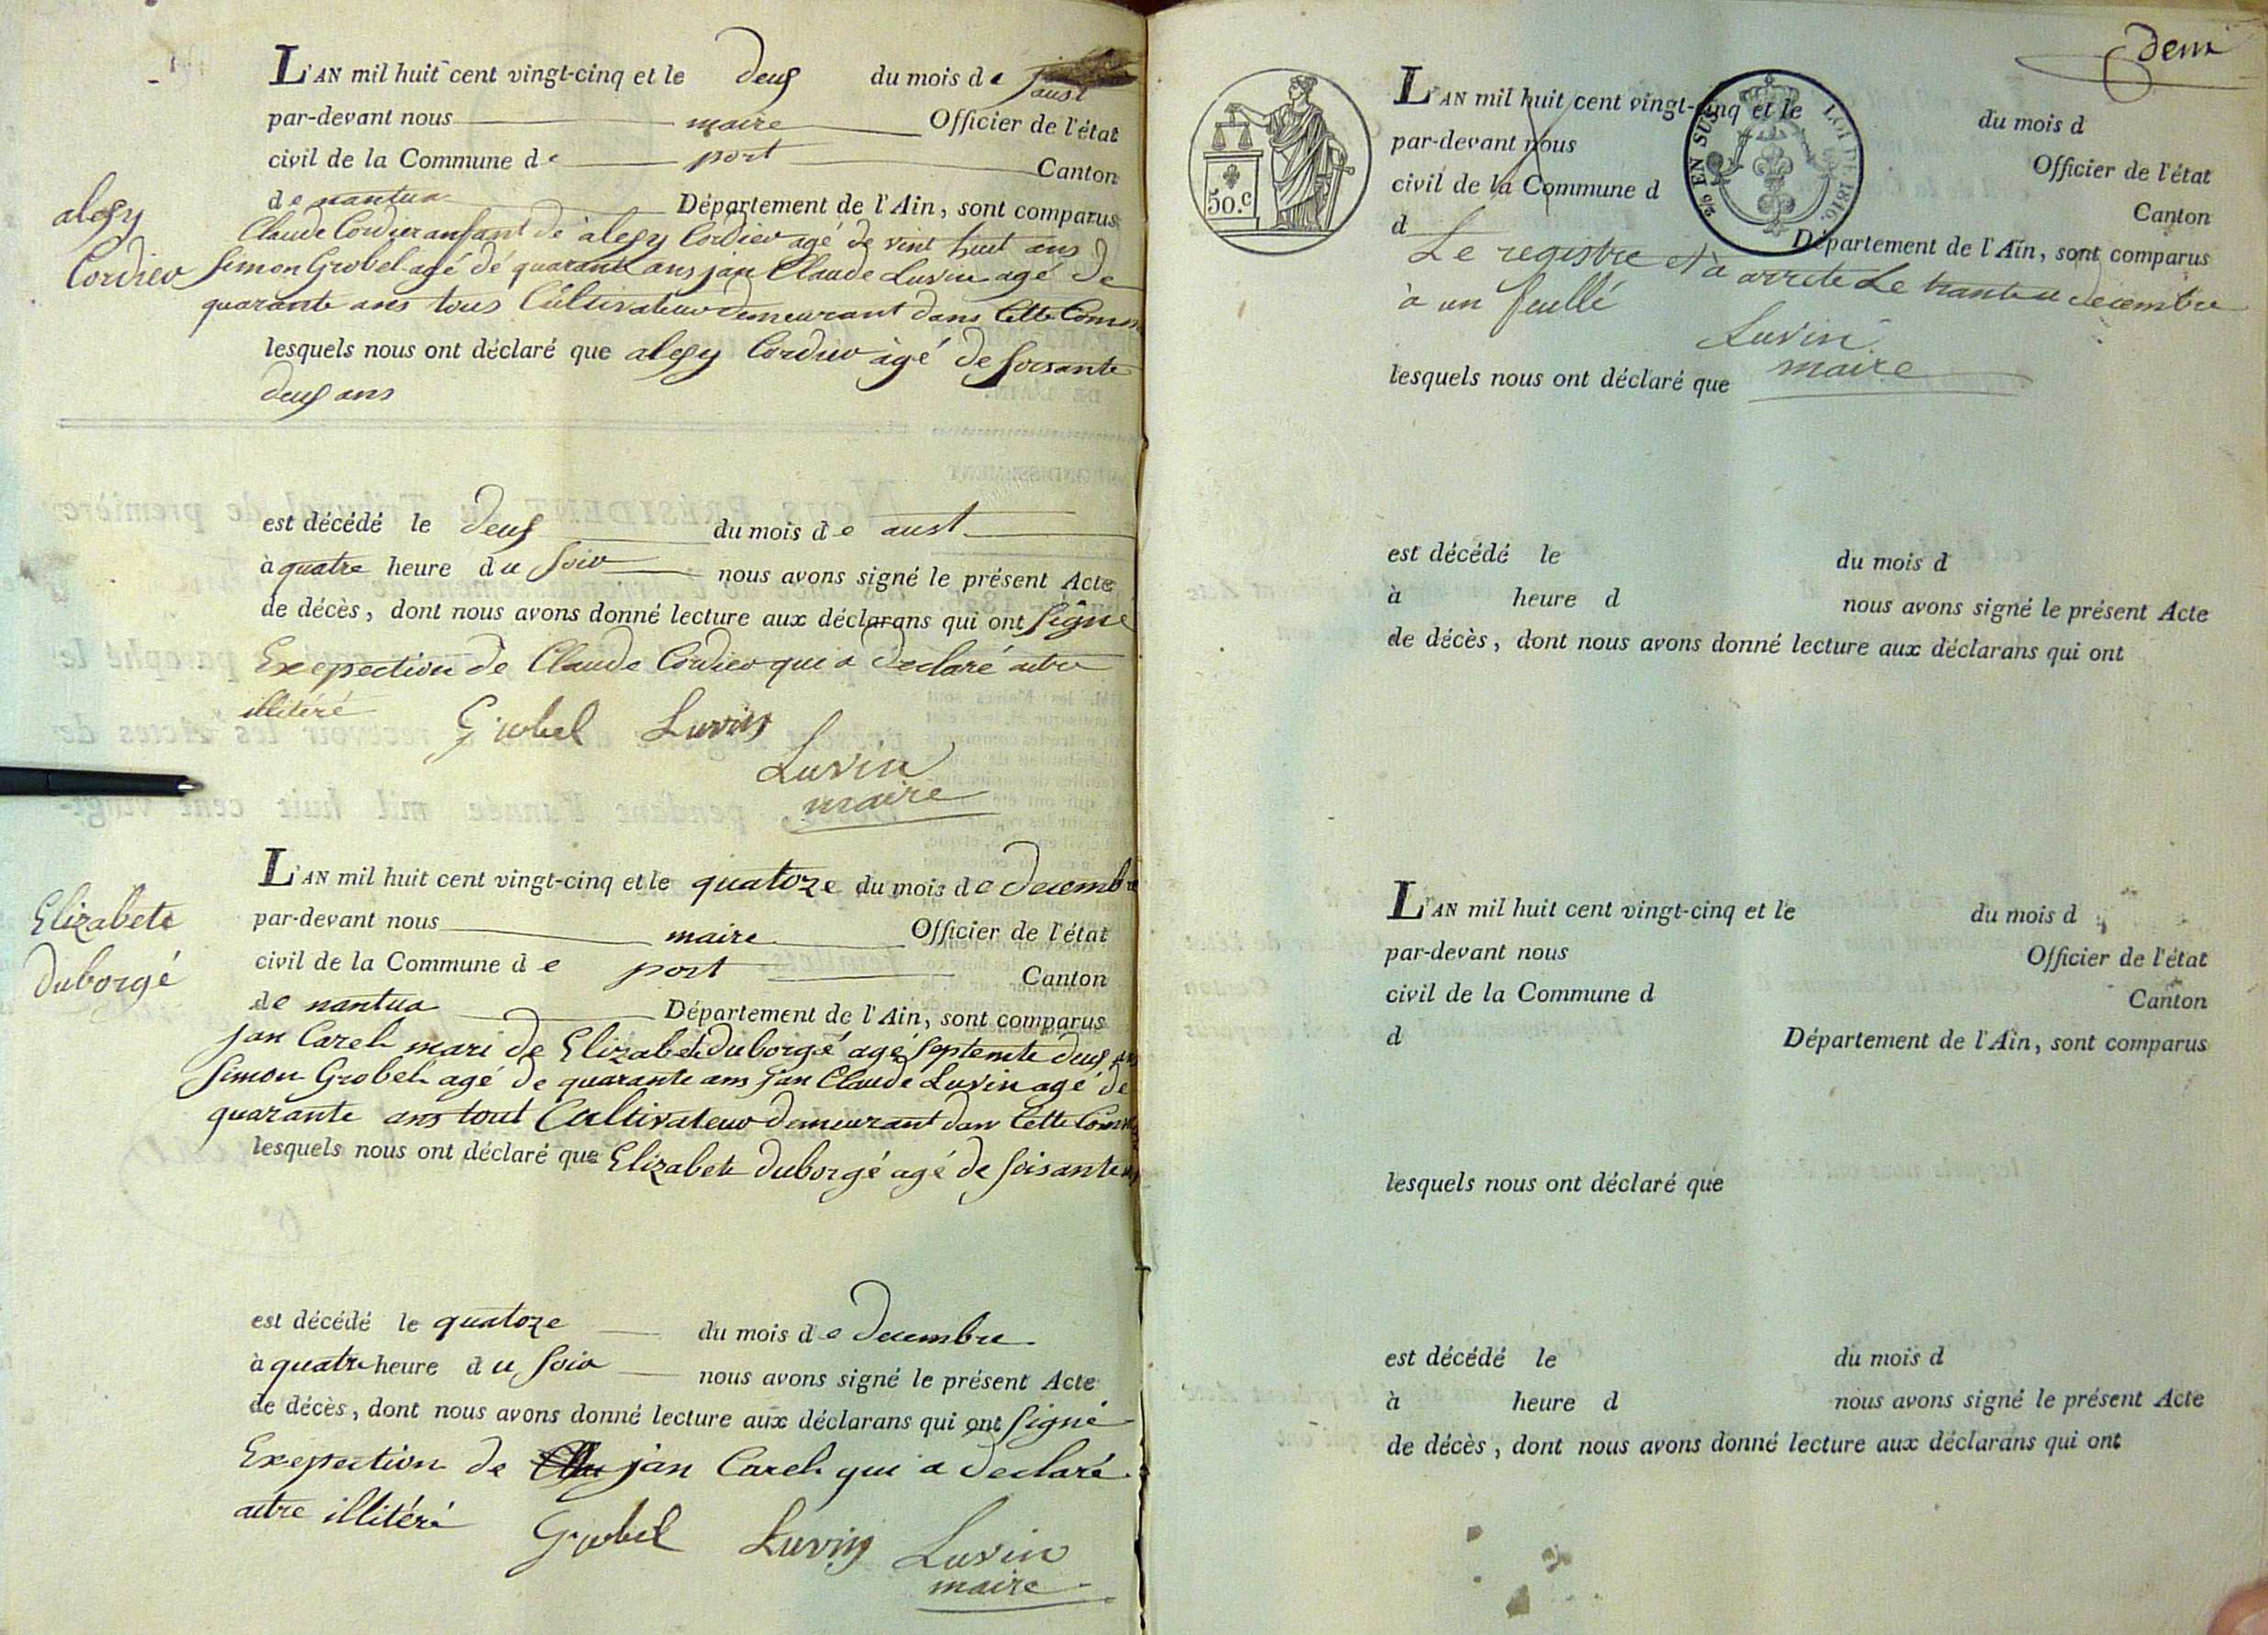 L'AN mil huit cent vingt-cinq et le deus du mois de aust
par-devant nous maire Officier de l'état
civil de la Commune de port Canton
de nantua Département de l'Ain, sont comparus
alexy
Cordier
Claude Cordier anfant de alexy Cordier agé de vint huit ans
Simon Grobel agé de quarante ans jan Claude Luvin agé de
quarante ans tous Cultivateur demeurant dans Cette Comm
lesquels nous ont déclaré que alexy Cordier agé de soisante
deus ans
est décédé le deus du mois de aust
à quatre heure du soir nous avons signé le présent Acte
de décès, dont nous avons donné lecture aux déclarans qui ont signé
Exepection de Claude Cordier qui a declaré aitre
illitéré
Grobel Luvin
Luvin
maire
L'AN mil huit cent vingt-cinq et le quatoze du mois de decembre
par-devant nous maire Officier de l'état
civil de la Commune de port Canton
de nantua Département de l'Ain, sont comparus
Elizabete
duborgé
jan Carel mari de Elizabete duborgé agé septente deus ans
Simon Grobel agé de quarante ans jan Claude Luvin agé de
quarante ans tout Cultivateur demeurant dans Cette Comm
lesquels nous ont déclaré que Elizabete duborgé agé de soisante ans
est décédé le quatoze du mois de decembre
à quatre heure du soir nous avons signé le présent Acte
de décès, dont nous avons donné lecture aux déclarans qui ont signé
Exepection de jan Carel qui a declaré
aitre illitéré
Grobel Luvin Luvin
maire
deux
50.C
EN SUS LOI DE 1816.
L'AN mil huit cent vingt-cinq et le du mois d
par-devant nous Officier de l'état
civil de la Commune d Canton
d Département de l'Ain, sont comparus
Le registre et a arrete Le trante u decembre
a un feullé
Luvin
maire
lesquels nous ont déclaré que
est décédé le du mois d
à heure d nous avons signé le présent Acte
de décès, dont nous avons donné lecture aux déclarans qui ont
L'AN mil huit cent vingt-cinq et le du mois d
par-devant nous Officier de l'état
civil de la Commune d Canton
d Département de l'Ain, sont comparus
lesquels nous ont déclaré que
est décédé le du mois d
à heure d nous avons signé le présent Acte
de décès, dont nous avons donné lecture aux déclarans qui ont